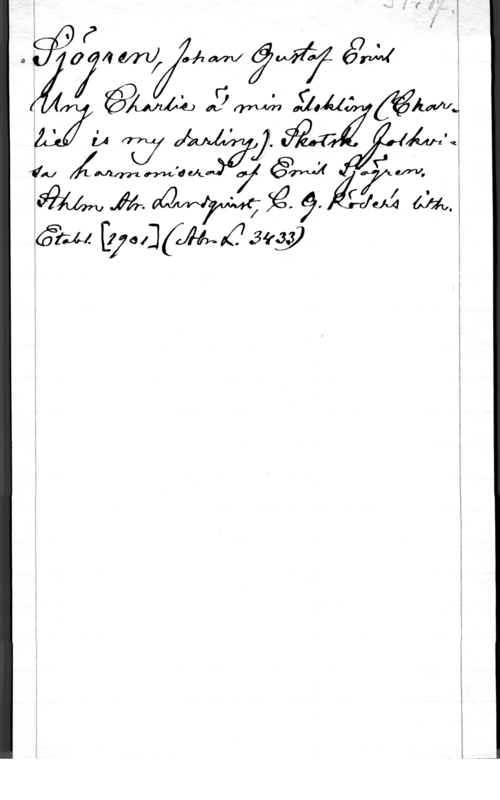 Sjögren, Johan Gustaf Emil
Ung Charlie ä min älskling (Char-
lie is my darling). Skotsk folkvi-
sa harmoniserad af Emil Sjögren.
Sthlm Abr. Lundquist, C. G. Röder's lith.
Etabl. [1901] (Abr. L. 3433)